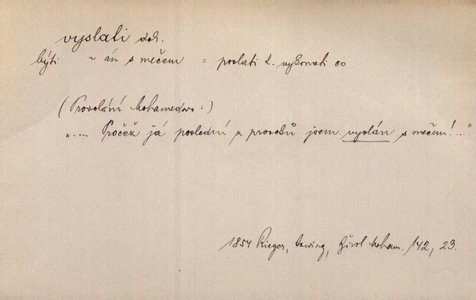 vyslati dok.
býti ~ án s mečem = poslati k. vykonati co
(Provolání Mohamedovo:)
„... Pročež já poslední z proroků jsem vyslán s mečem!..."
1854 Rieger, Irwing, Život Moham. 142, 23.